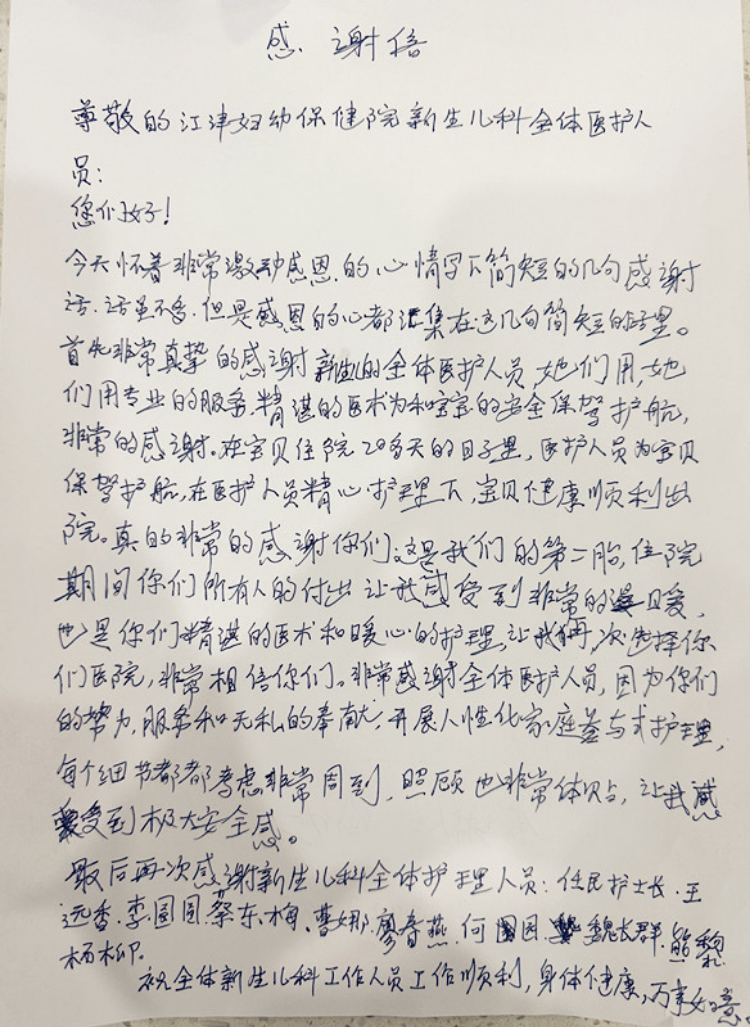 感谢信
尊敬的江津妇幼保健院新生儿科全体医护人
员：
您们好！
今天怀着非常激动感恩的心情写下简短的几句感谢
话.话虽不多.但是感恩的心都汇集在这几句简短的话里。
首先非常真挚的感谢新生儿的全体医护人员,她们用,她
们用专业的服务,精湛的医术为和宝宝的安全保驾护航,
非常的感谢.在宝贝住院20多天的日子里,医护人员为宝贝
保驾护航,在医护人员精心护理下,宝贝健康顺利出
院。真的非常的感谢你们,这是我们的第二胎,住院
期间你们所有人的付出让我感受到非常的温暖,
也是你们精湛的医术和暖心的护理,让我再次选择你
们医院,非常相信你们。非常感谢全体医护人员,因为你们
的努力,服务和无私的奉献,开展人性化家庭参与式护理,
每个细节都都考虑非常周到,照顾也非常体贴,让我感
受到极大安全感。
最后再次感谢新生儿科全体护理人员:任民护士长.王
远香.李圆圆.蔡东梅.曹娜.廖春燕.何园.魏长群.熊黎.
杨柳.
祝全体新生儿科工作人员工作顺利,身体健康,万事如意.